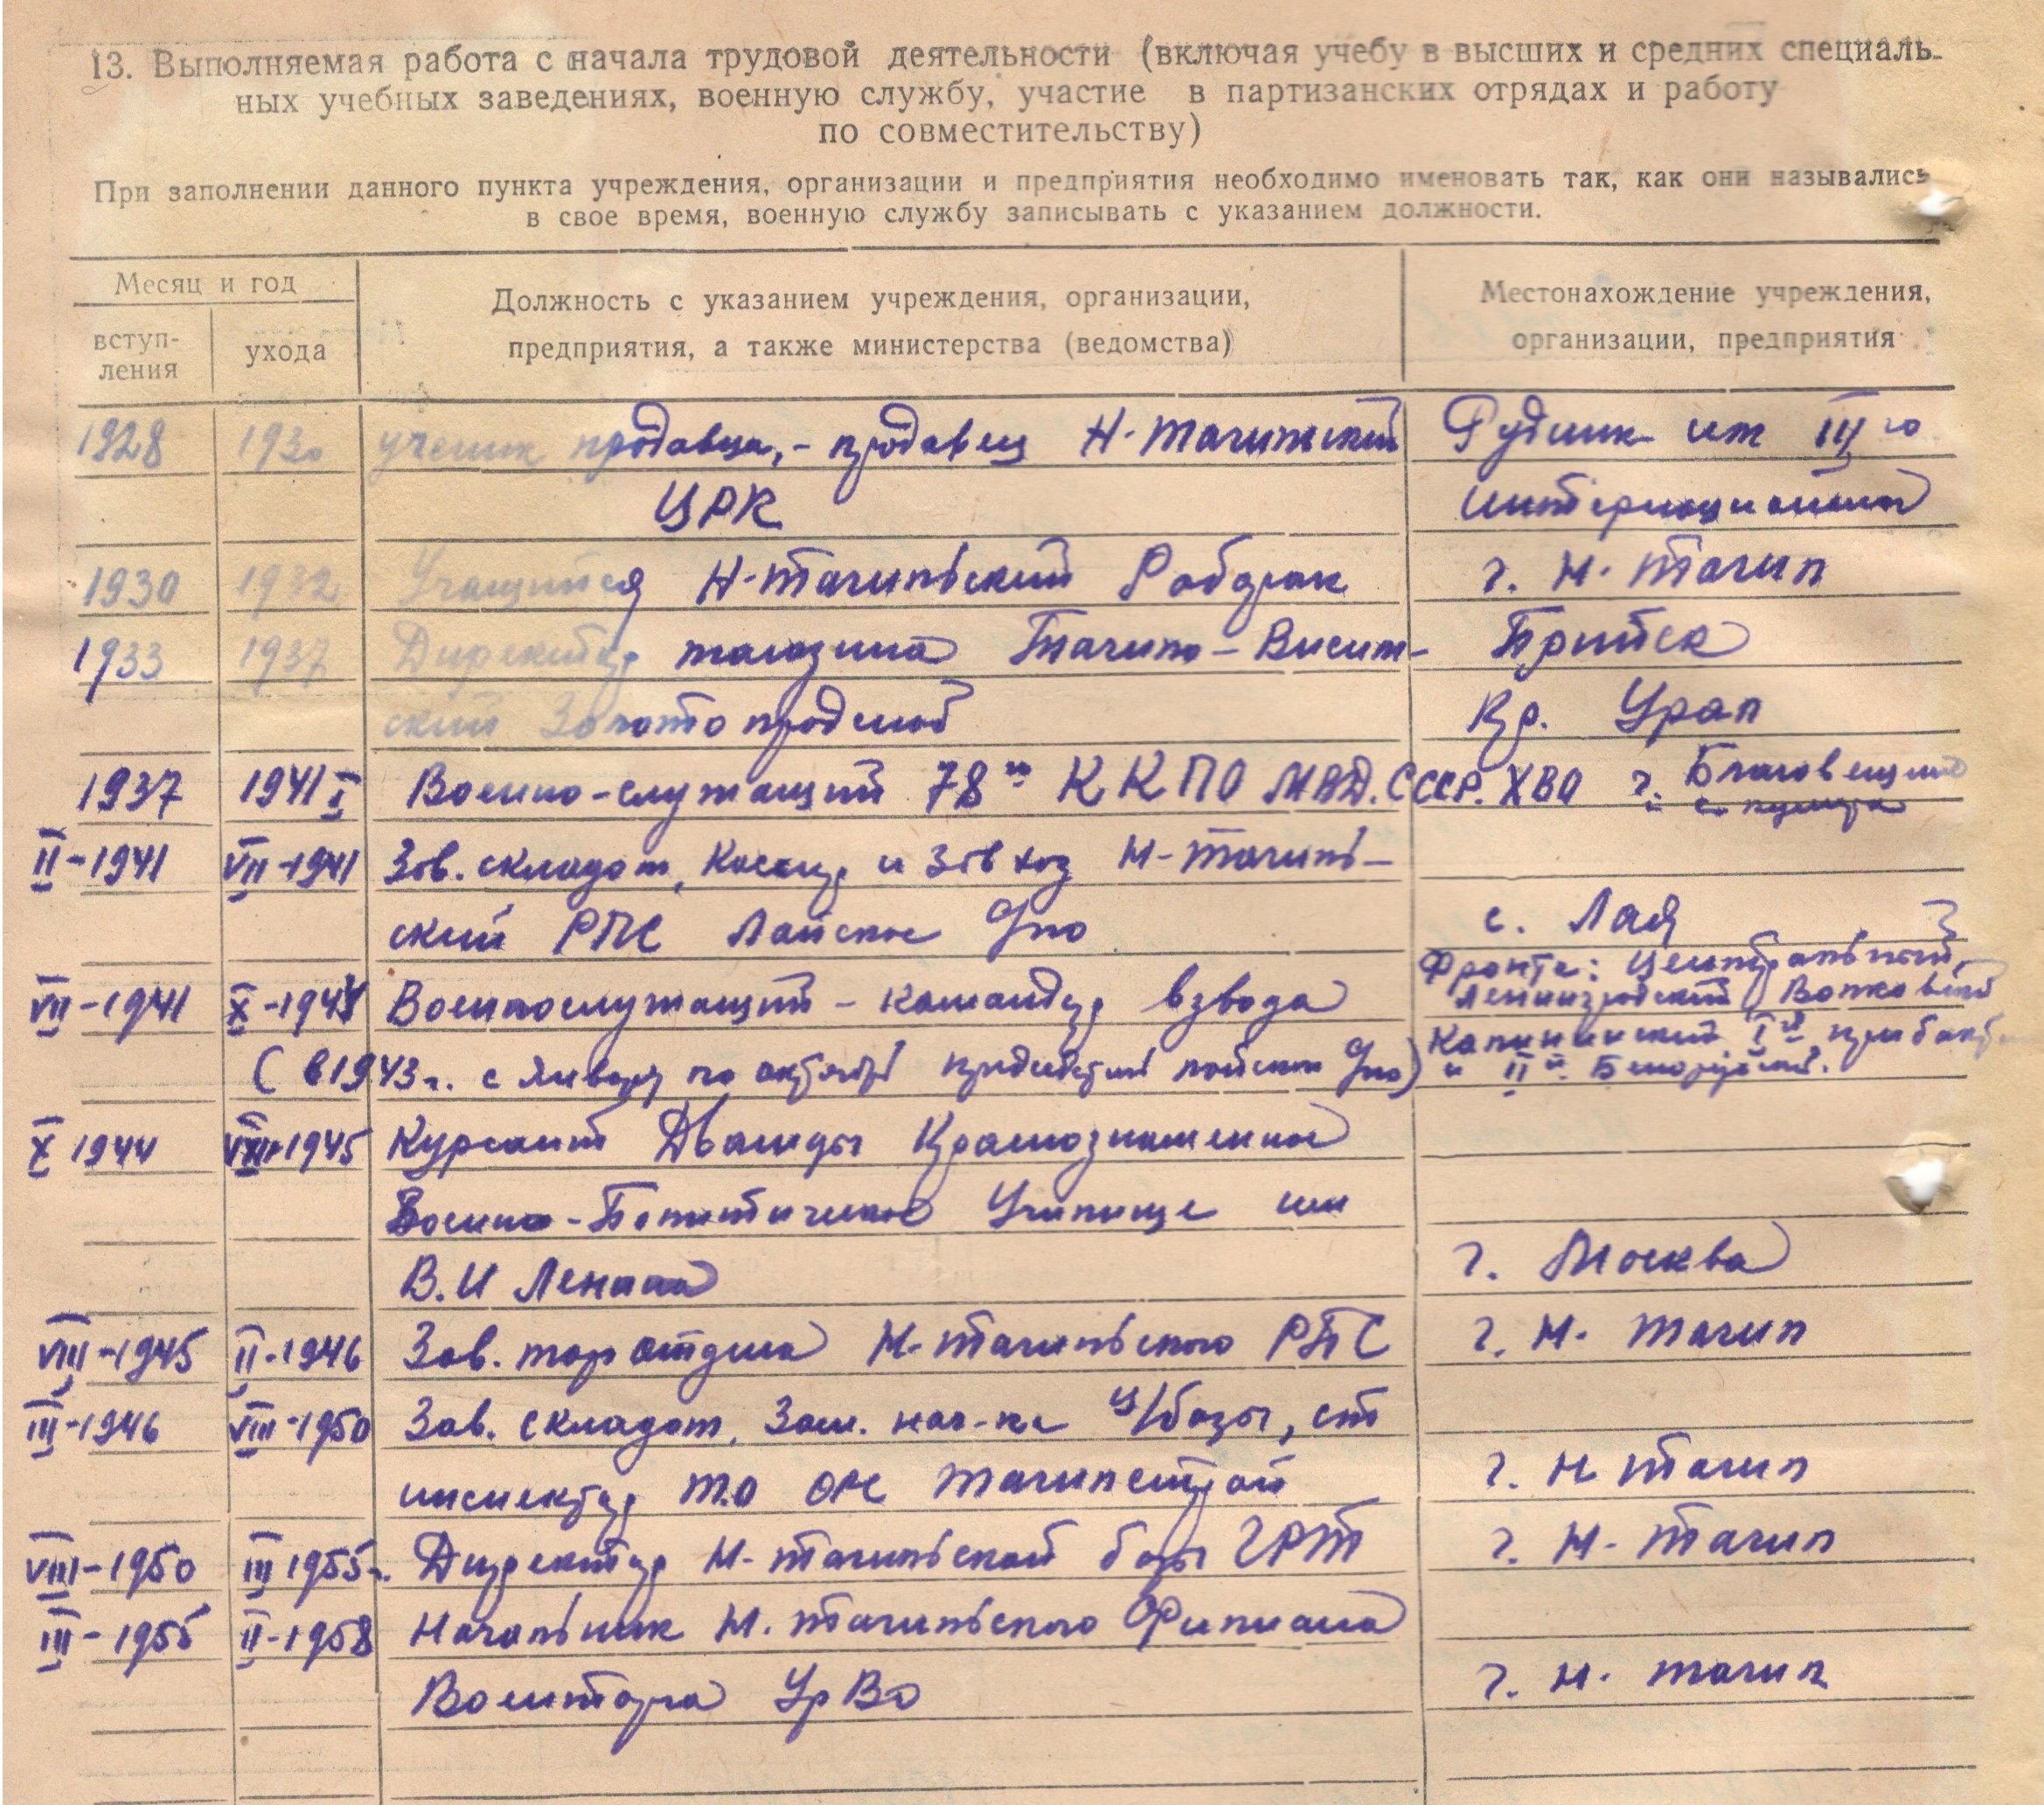 13. Выполняемая работа с начала трудовой деятельности (включая учебу в высших и средних специаль-
ных учебных заведениях, военную службу, участие в партизанских отрядах и работу
по совместительству)
При заполнении данного пункта учреждения, организации и предприятия необходимо именовать так, как они назывались
в свое время, военную службу записывать с указанием должности.
Месяц и год
вступ-
ления
ухода
Должность с указанием учреждения, организации,
предприятия, а также министерства (ведомства)
Местонахождение учреждения,
организации, предприятия
1928 1930 ученик продавца, - продавец Н-Тагильский Рудник им III го
ЦРК Интернационала
1930 1932 Учащийся Н-Тагильский Рабфак г. Н. Тагил
1933 1937 Директор магазина Тагило-Висим-
ский Золотопродснаб Кр. Урал
1937 1941 I Военно-служащий 78й ККПО МВД.СССР.ХВО г. Благовещенс
II-1941 VII-1941 Зав. складом, Кассир и Завхоз Н-Тагиль-
ский РПС Лайское Спо с. Лая
VII-1941 X-1944 Военнослужащий - командир взвода Фронта: Центральный,
Ленинградский, Волховский
(в 1943г. с января по октябрь председатель лайского Спо) Калининский, I й прибалт
и II й Белорусский.
X 1944 VIII-1945 Курсант Дважды Краснознаменное
Военно-Политическое Училище им
В.И Ленина г. Москва
VIII-1945 II-1946 Зав. торготдела Н-Тагильского РПС г. Н. Тагил
III-1946 VIII-1950 Зав. складом, Зам. нач-ка ц/базы, ст
инспектор т.о ОРС Тагилстрой г. Н Тагил
VIII-1950 III 1955г. Директор Н-Тагильской базы ГРТ г. Н-Тагил
III-1955 II-1958 Начальник Н. Тагильского Филиала
Военторга УрВо г. Н. Тагил